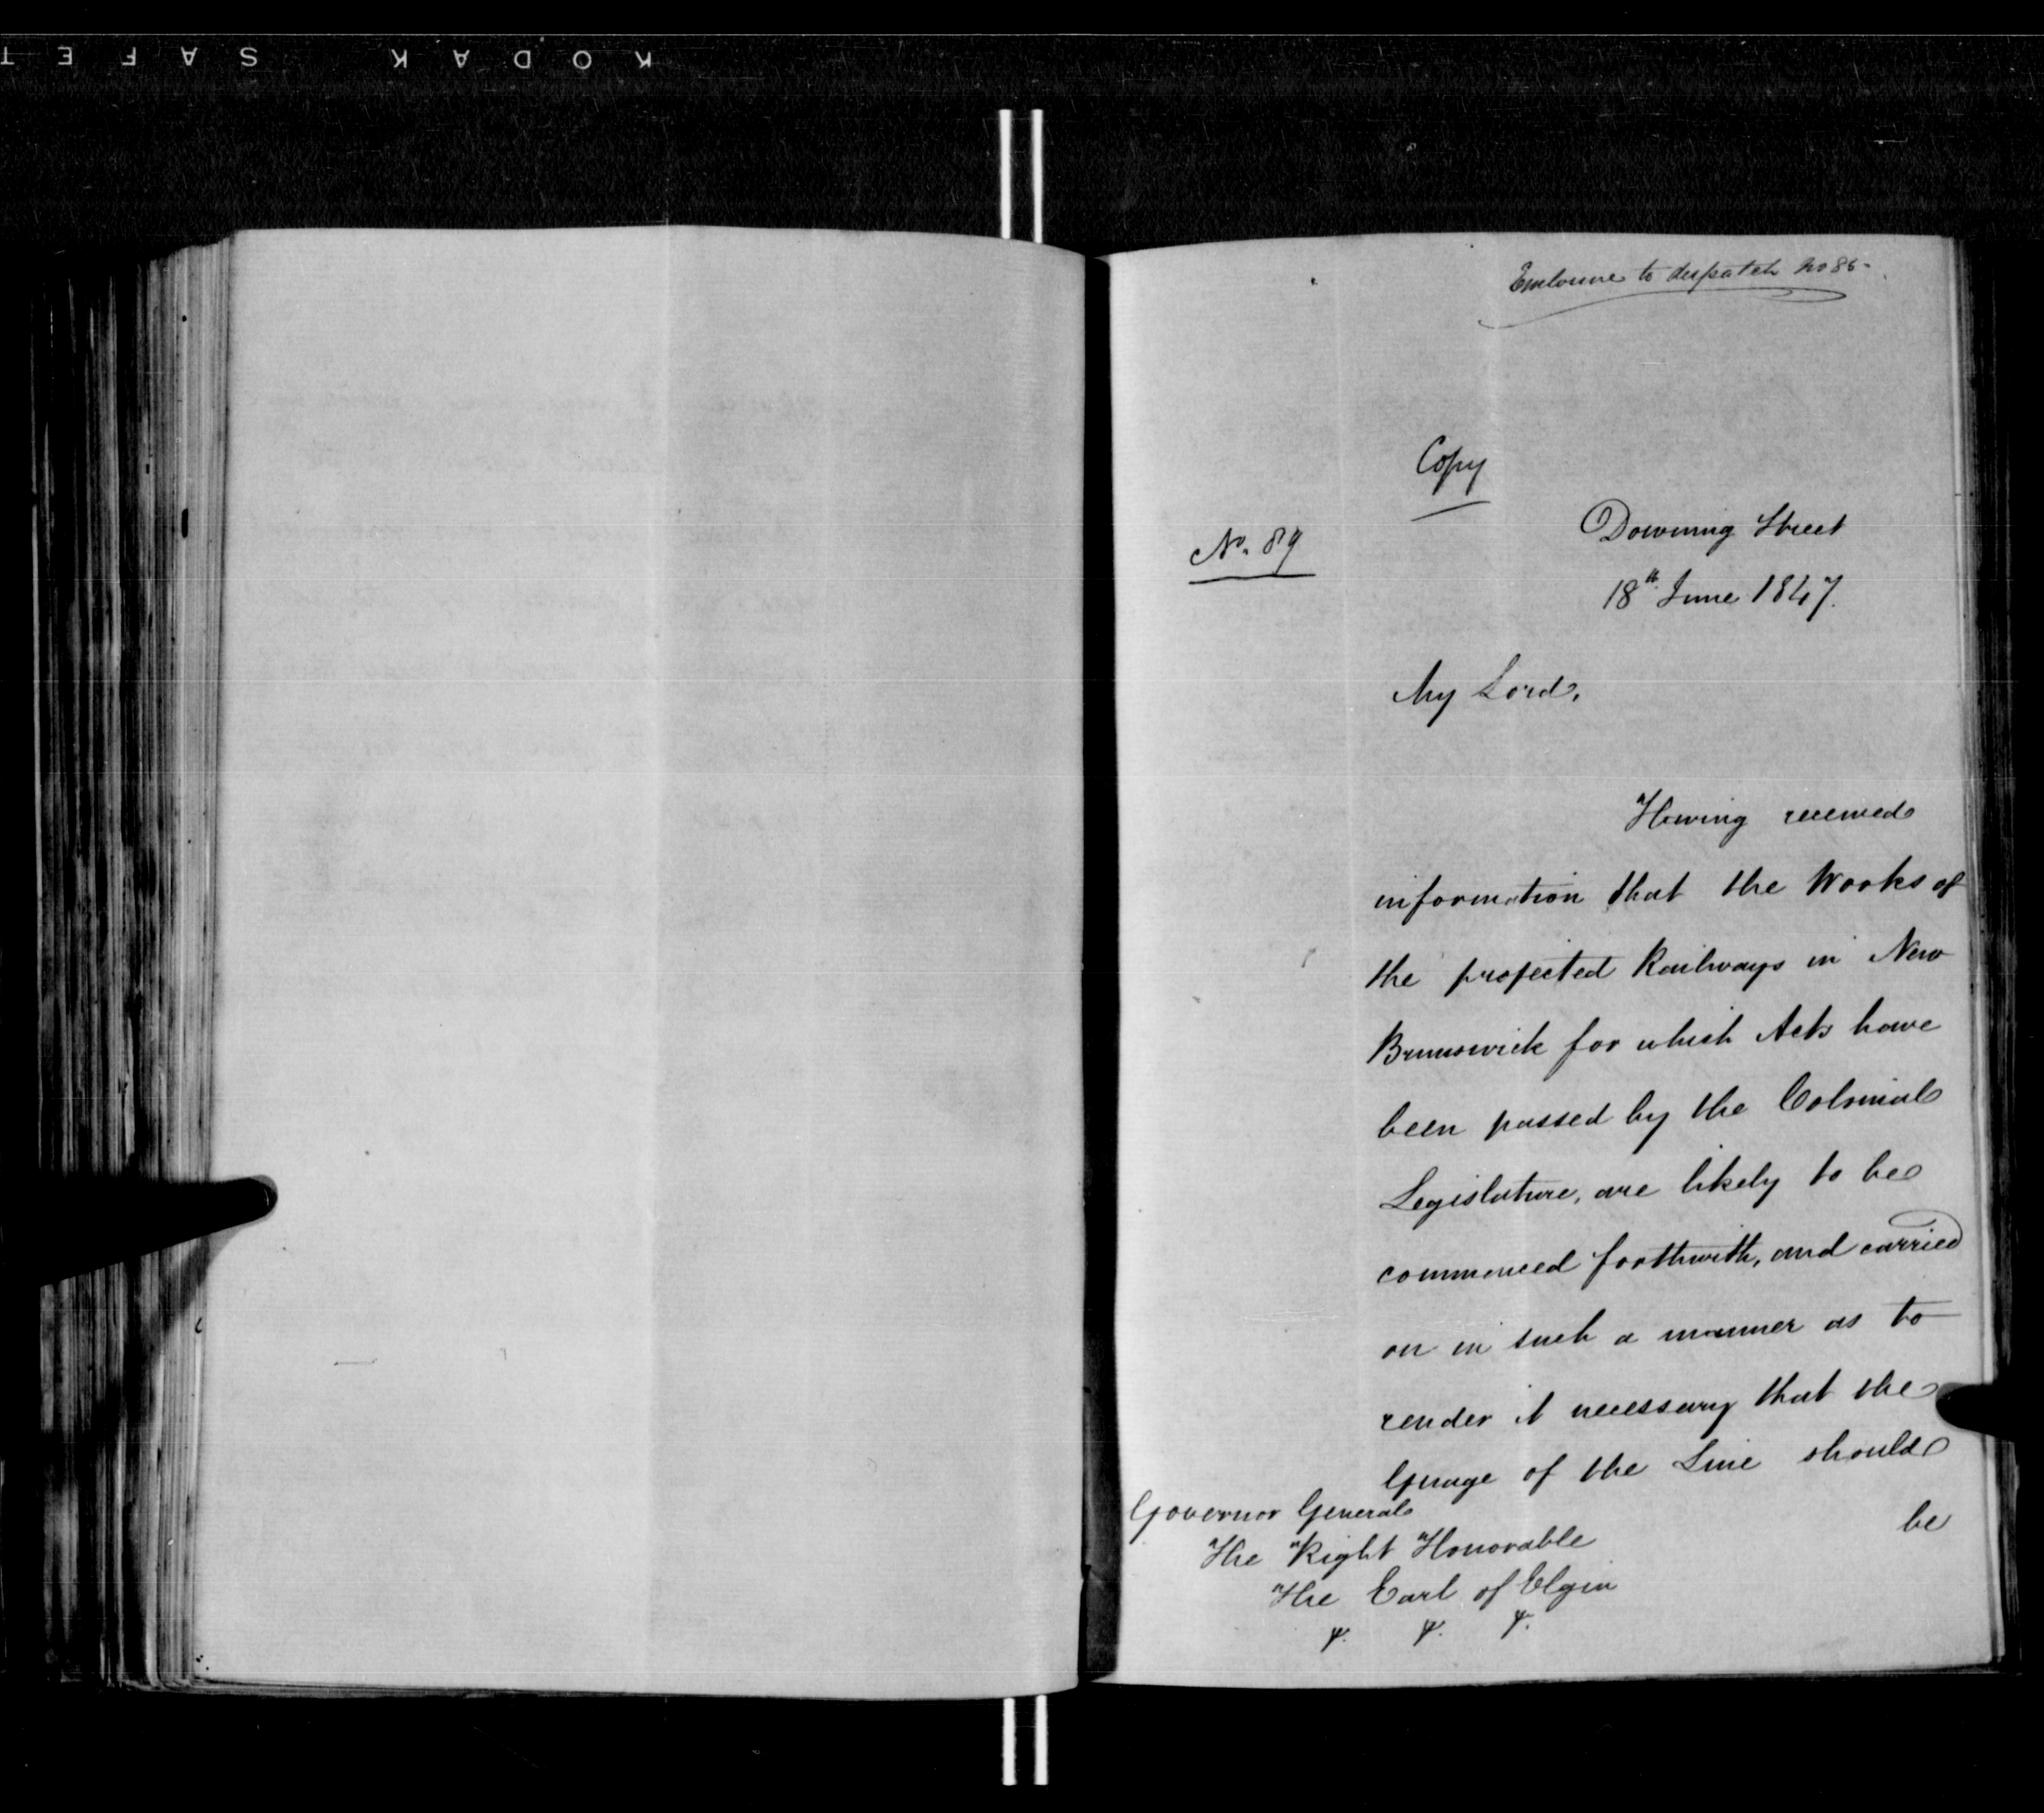 KODAK SAFET
Enclosure to despatch No 86-
Copy
No. 89
Downing Street
18th June 1847.
My Lord,
Having received
information that the Works of
the projected Railways in New
Brunswick for which Acts have
been passed by the Colonial
Legislature, are likely to be
commenced forthwith, and carried
on in such a manner as to
render it necessary that the
Guage of the Line should
be
Governor General
The Right Honorable
The Earl of Elgin